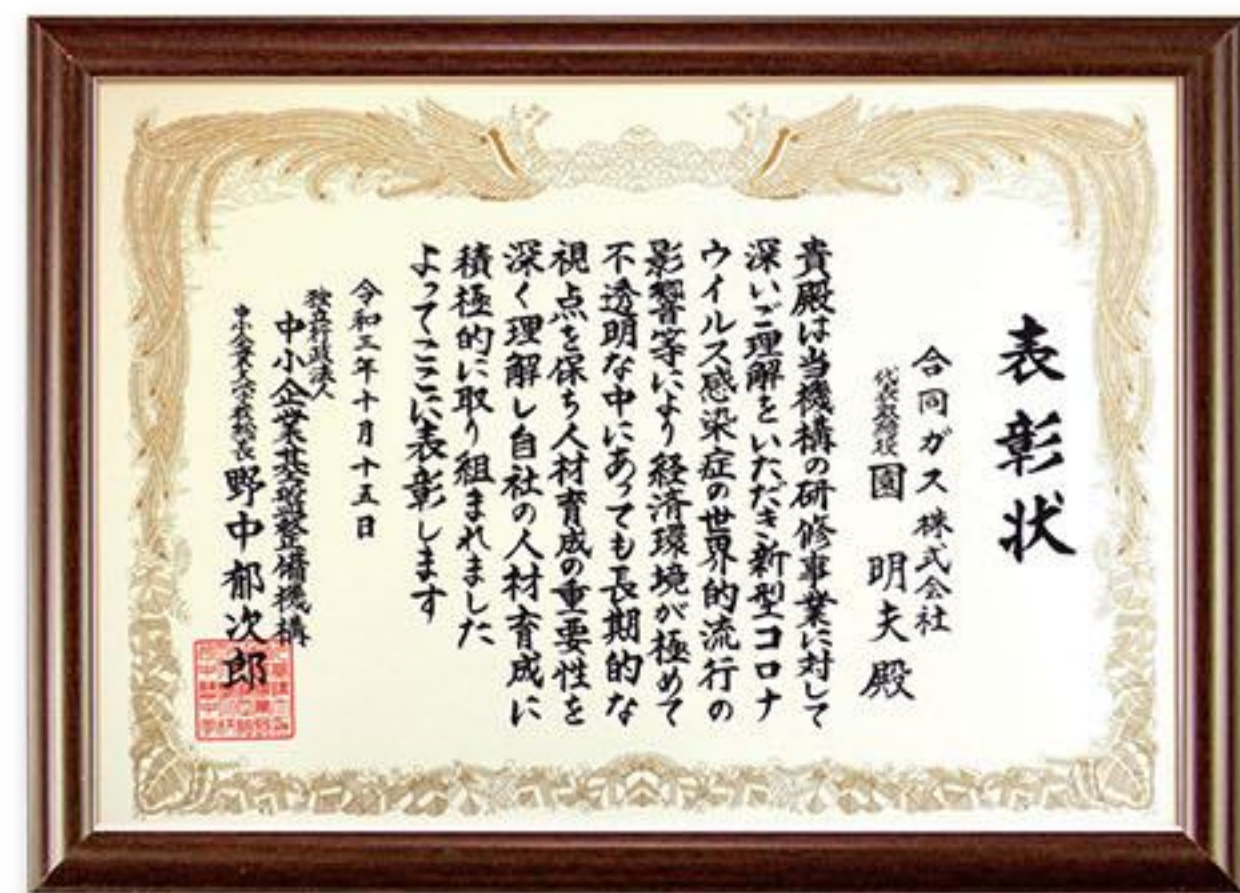 表彰状
合同ガス株式会社
代表取締役 園 明夫 殿
貴殿は当機構の研修事業に対して
深いご理解をいただき新型コロナ
ウイルス感染症の世界的流行の
影響等により経済環境が極めて
不透明な中にあっても長期的な
視点を保ち人材育成の重要性を
深く理解し自社の人材育成に
積極的に取り組まれました
よってここに表彰します
令和三年十月十五日
独立行政法人
中小企業基盤整備機構
中小企業大学校総長 野中郁次郎